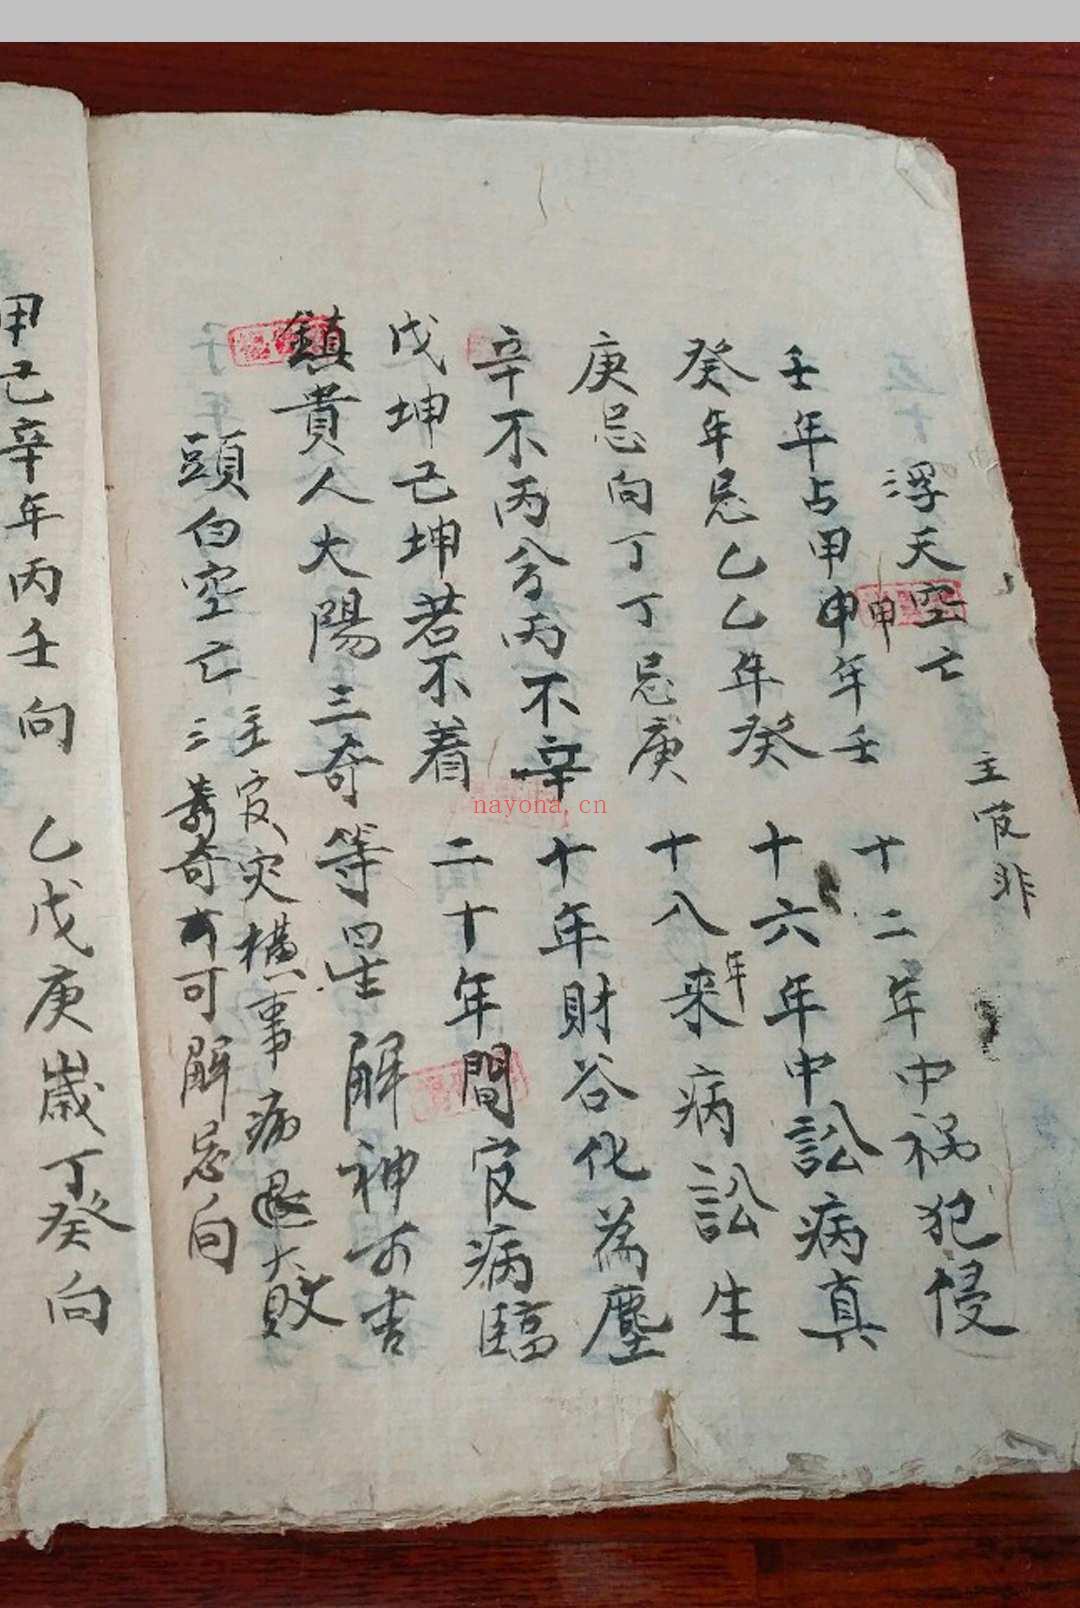 浮天空亡 主官非
壬年占甲申年壬 十二年中祸犯侵
甲
癸年忌乙乙年癸 十六年中訟病真
庚忌向丁丁忌庚 十八来病訟生
年
辛不丙兮丙不辛 十年財谷化為塵
戊坤己坤若不着 二十年間官病臨
鎮貴人大陽三奇等星解神方吉
頭白空亡 主官灾橫事病退大敗
三奇可解忌向
甲己辛年丙壬向 乙戊庚歲丁癸向
nayoha.cn